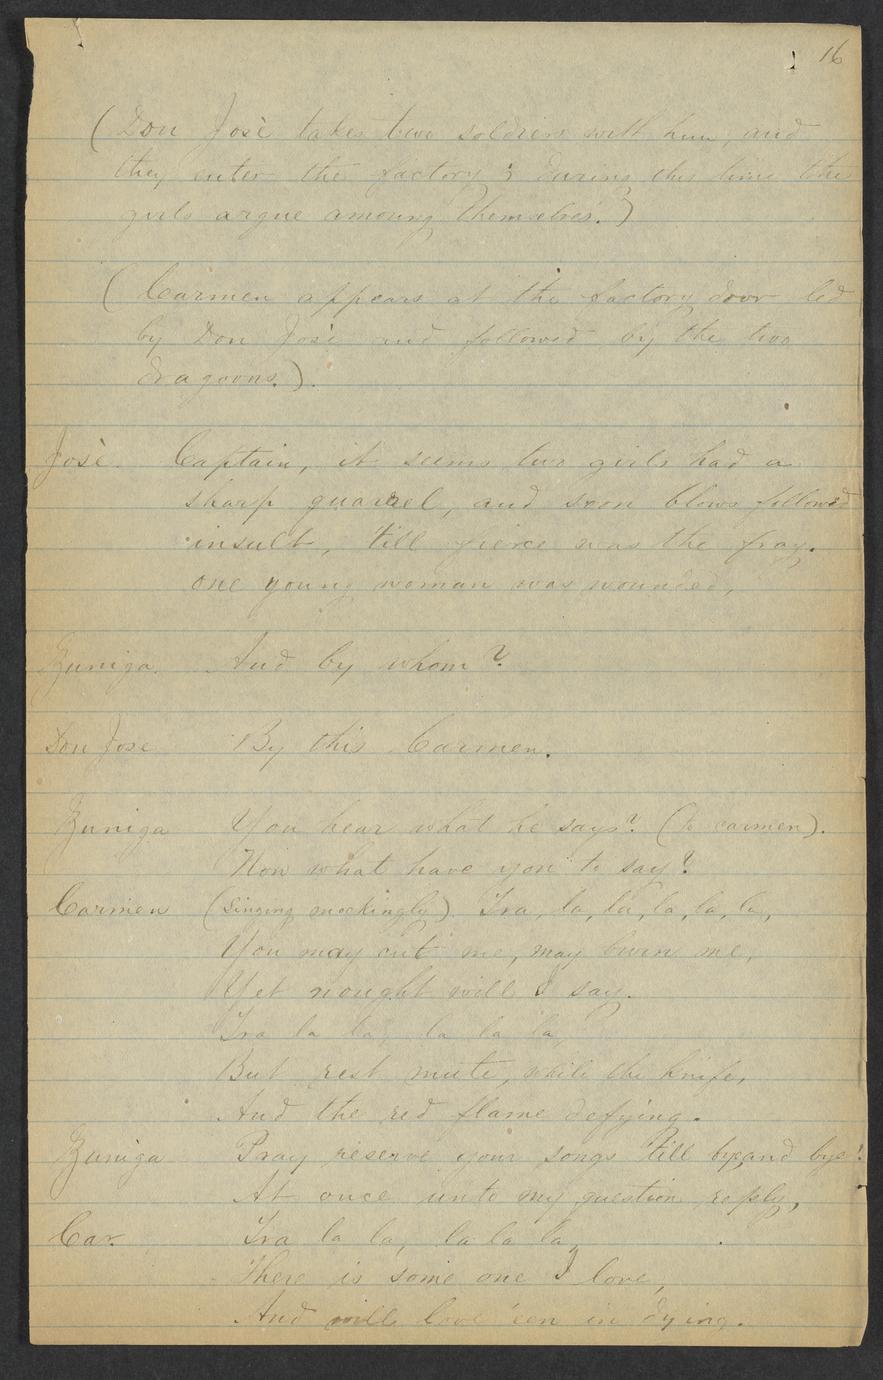 16
(Don Josè takes two soldiers with him, and
they enter the factory; during this time the
girls argue amoung themselves.)
(Carmen appears at the factory door led
by Don Josè and followed by the two
dragoons.).
Josè. Captain, it seems two girls had a
sharp quarrel, and soon blows followed
insult, 'till fierce was the fray.
one young woman was wounded,
Zuniga. And by whom?
Don Jose By this Carmen.
Zuniga You hear what he says? (to carmen).
Now what have you to say?
Carmen (Singing mockingly) Tra, la, la, la, la, la,
You may cut me, may burn me,
Yet nought will I say.
Tra la la, la la la,
But rest mute, while the knife,
And the red flame defying.
Zuniga Pray reserve your songs 'till bye and bye!
At once unto my question reply,
Car. Tra la la, la la la,
There is some one I love,
And will love 'een in dying.